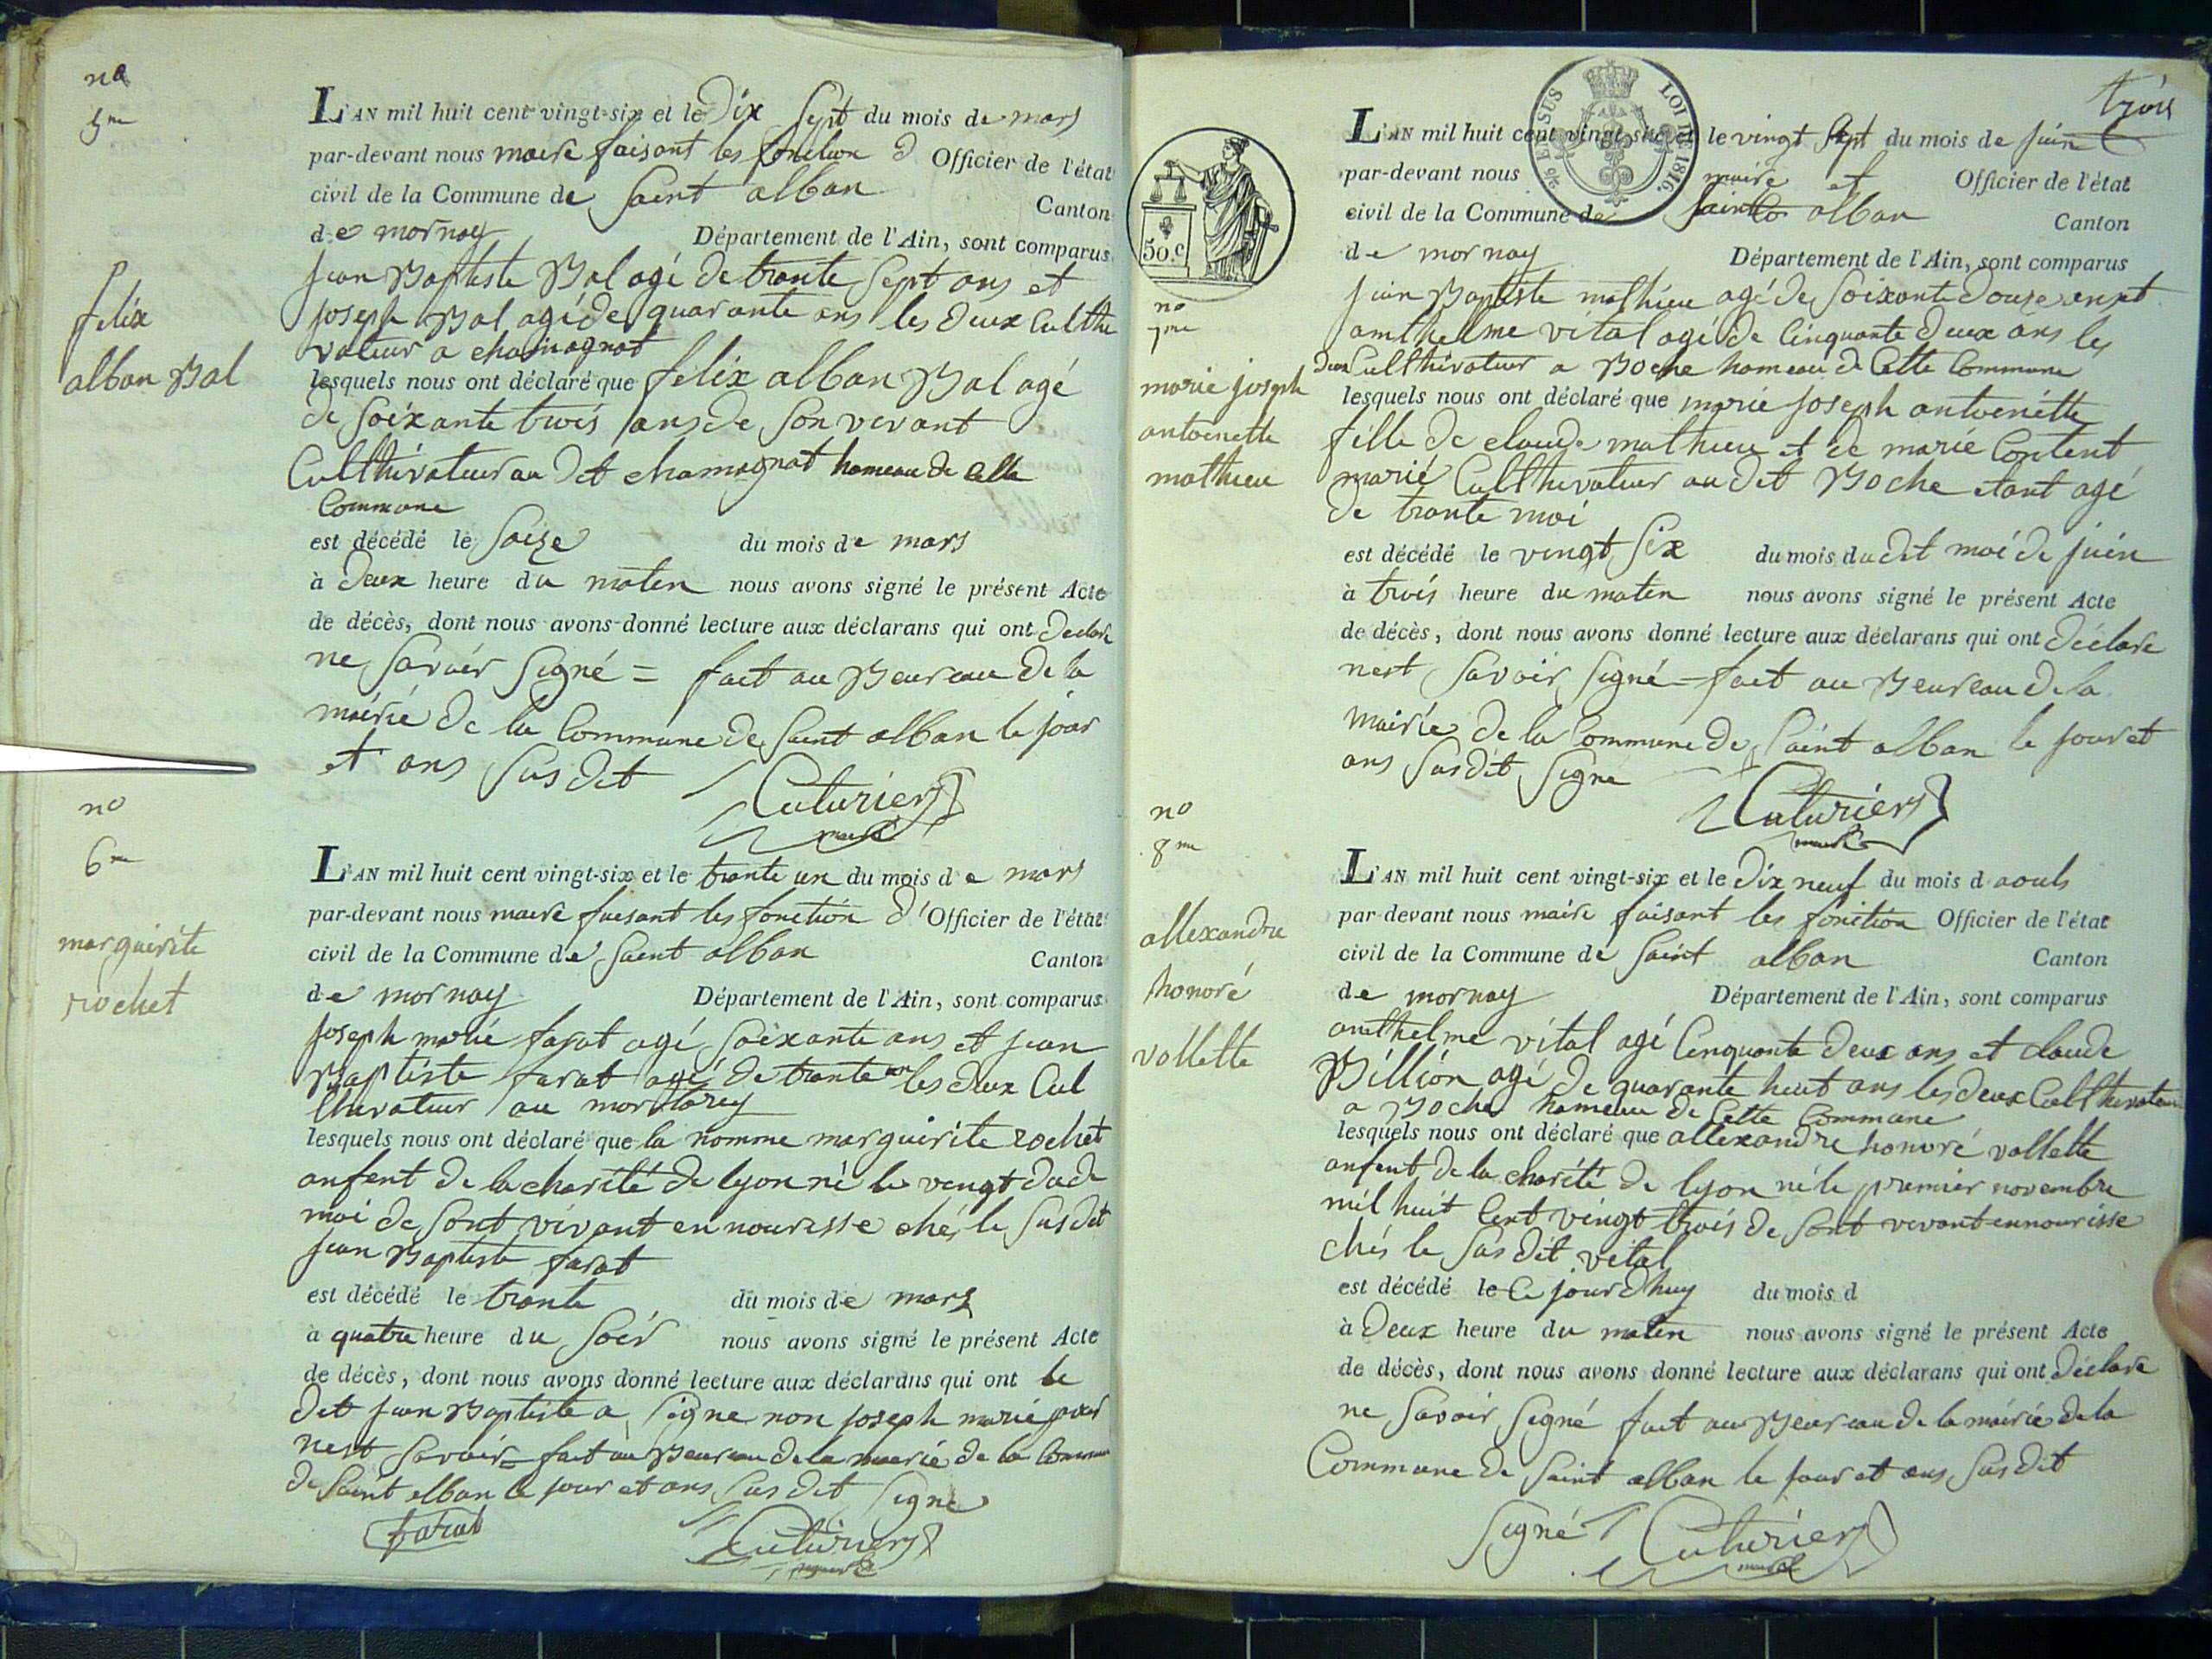 no
5me
felix
alban Bal
L'AN mil huit cent vingt-six et le Dix Sept du mois de mars
par-devant nous maire faisant les fonction d Officier de l'état
civil de la Commune de Saint alban Canton
de mornay Département de l'Ain, sont comparus
jean Baptiste Bal agé de trante Sept ans et
joseph Bal agé de quarante ans les deux Culthi
vateur a chamagnat
lesquels nous ont déclaré que felix alban Bal agé
de Soixante trois ans de Son vivant
Culthivateur au dit chamagnat hameau de Cette
Commune
est décédé le Saize du mois de mars
à deux heure du maten nous avons signé le présent Acte
de décès, dont nous avons donné lecture aux déclarans qui ont declare
ne Savoir Signé = fait au Beureau de la
mairie de la Commune de Saint alban le jour
et ans Susdit
Cuturier
maire
no
6me
marguirite
rochet
L'AN mil huit cent vingt-six et le trante un du mois de mars
par-devant nous maire faisant les fonction d'Officier de l'état
civil de la Commune de Saint alban Canton
de mornay Département de l'Ain, sont comparus
joseph marie farat agé Soixante ans et jean
Baptiste farat agé de trante ans les deux Cul
thivateur au
lesquels nous ont déclaré que la nomme marguirite rochet
anfent de la charité de lyon né le vengt dude
moi de Sont vivant en nourisse ches le Susdit
jean Baptiste farat
est décédé le trante du mois de mars
à quatre heure du Soir nous avons signé le présent Acte
de décès, dont nous avons donné lecture aux déclarans qui ont le
dit jean Baptiste a Signe non joseph marie pour
nest Savoir = fait au Beureau de la mairie de la Commune
de Saint alban le jour et ans Sus dit Signe
farat
Cuturier
maire
trois
L'AN mil huit cent vingt-six et le vingt Sept du mois de juin
par-devant nous maire et Officier de l'état
civil de la Commune de Saint alban Canton
de mornay Département de l'Ain, sont comparus
LOI DE 1816.
50.c
no
7me
marie joseph
antoinette
mathieu
jean Baptiste mathieu agé de Soixante douze ans et
amthelme vital agé de Cinquante deux ans les
deux Culthivateur a Boche hameau de Cette Commune
lesquels nous ont déclaré que marie joseph antoenitte
fille de claude mathieu et de marie Content
marié Culthivateur au dit Boche etant agé
de trante moi
est décédé le vingt Six du mois dudit moi de juin
à trois heure du maten nous avons signé le présent Acte
de décès, dont nous avons donné lecture aux déclarans qui ont déclare
nest Savoir Signé = fait au Beureau de la
mairie de la Commune de Saint alban le jour et
ans Susdit Signé
Cuturier
maire
no
8me
allexandre
honoré
vallette
L'AN mil huit cent vingt-six et le Dix neuf du mois d aouts
par-devant nous maire faisant les fonction Officier de l'état
civil de la Commune de Saint alban Canton
de mornay Département de l'Ain, sont comparus
amthelme vital agé Cenquante deux ans et claude
Billion agé de quarante huit ans les deux Culthivateur
a Boche hameau de Cette Commune
lesquels nous ont déclaré que allexandre honoré vallette
anfent de la charité de lyon né le premier novembre
mil huit Cent vingt trois de Sont vivant en nourisse
chés le Susdit vital
est décédé le Ce jourdhuy du mois d
à Deux heure du maten nous avons signé le présent Acte
de décès, dont nous avons donné lecture aux déclarans qui ont déclare
ne Savoir Signé fait au Beureau de la mairie de la
Commune de Saint alban le jour et ans Susdit
Signé Cuturier
maire